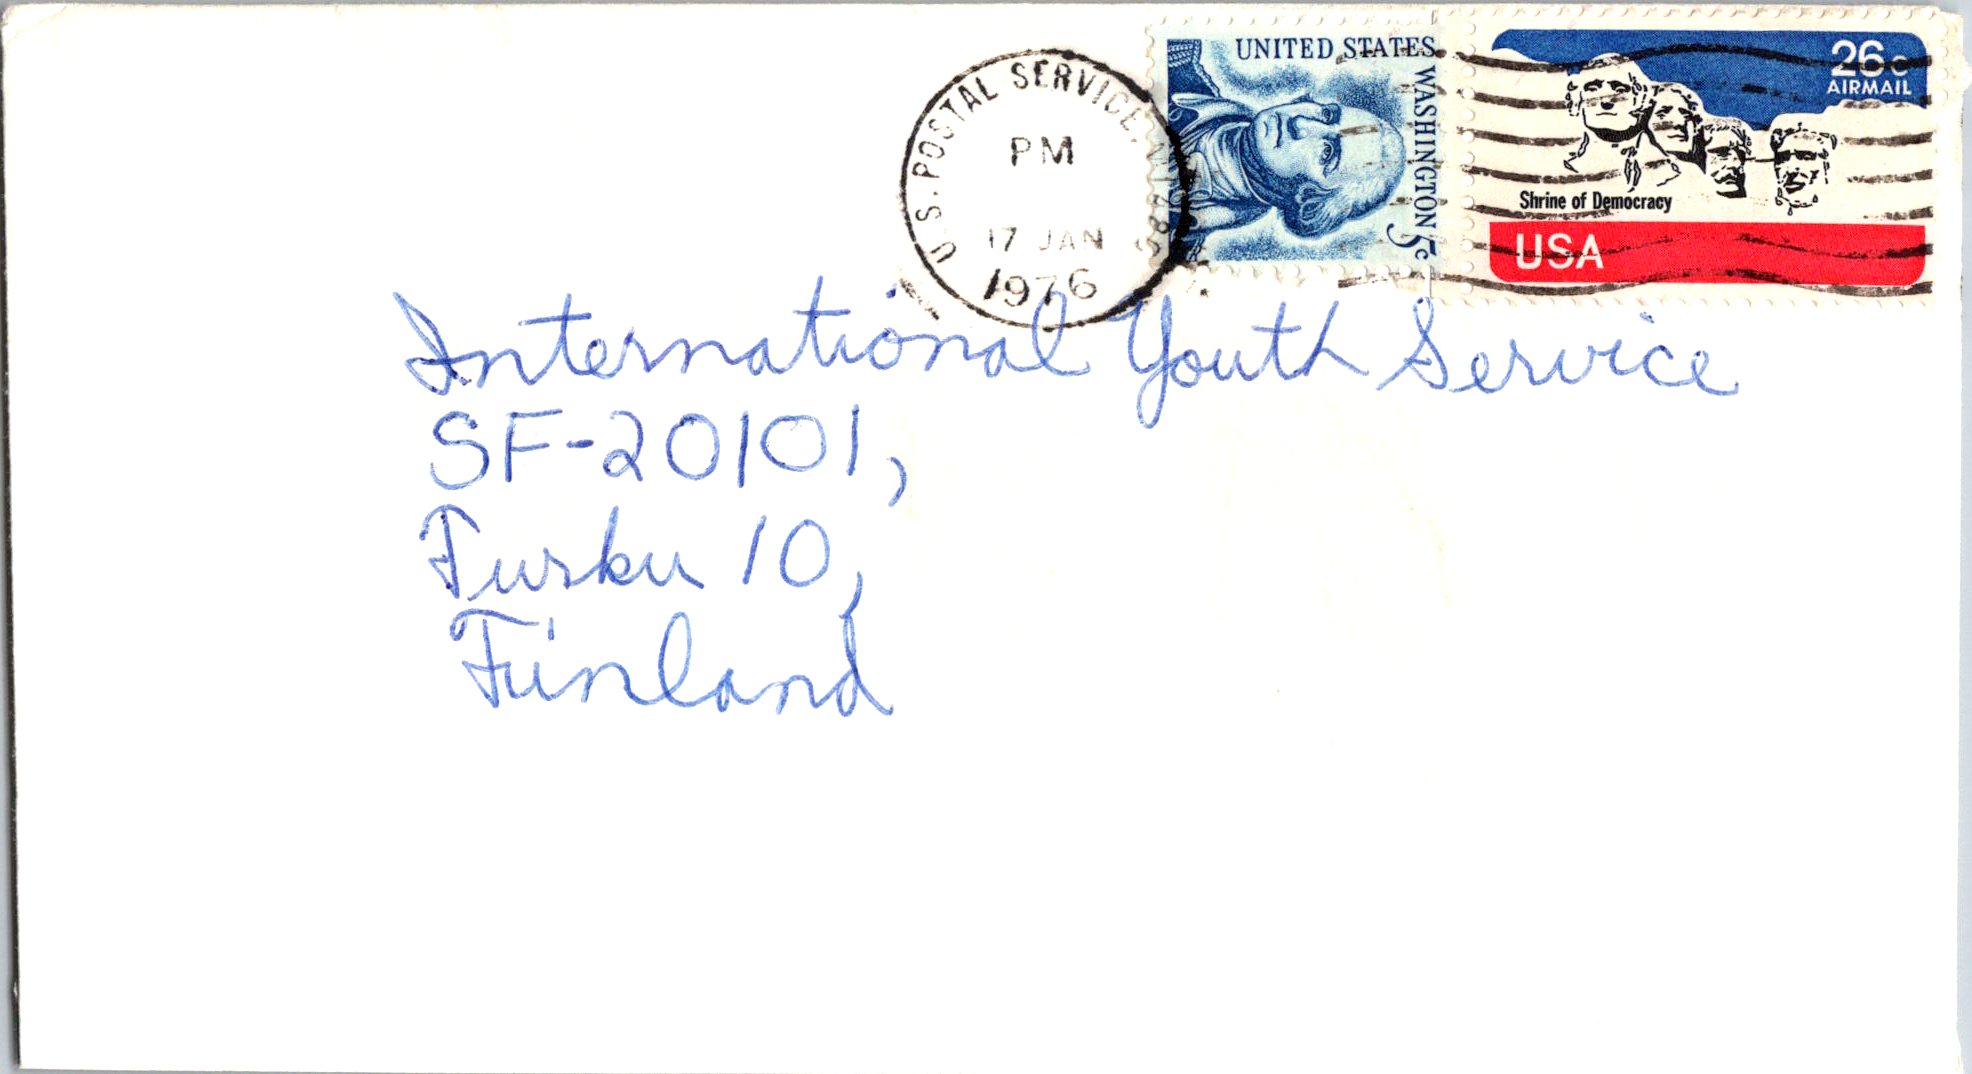 U.S. POSTAL SERVICE,
PM
17 JAN
1976
UNITED STATES
WASHINGTON 5c
26c
AIRMAIL
Shrine of Democracy
USA
International Youth Service
SF-20101,
Turku 10,
Finland